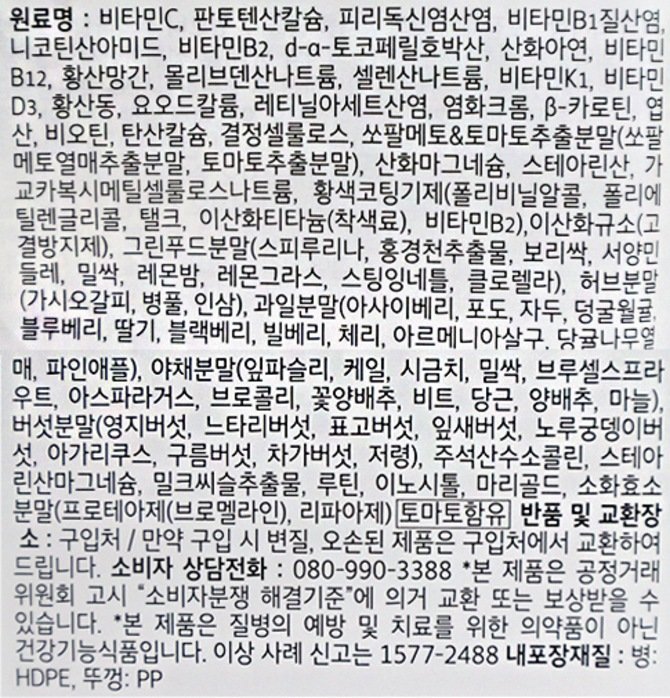 원료명 : 비타민C, 판토텐산칼슘, 피리독신염산염, 비타민B1질산염,
니코틴산아미드, 비타민B2, d-α-토코페릴호박산, 산화아연, 비타민
B12, 황산망간, 몰리브덴산나트륨, 셀렌산나트륨, 비타민K1, 비타민
D3, 황산동, 요오드칼륨, 레티닐아세트산염, 염화크롬, β-카로틴, 엽
산, 비오틴, 탄산칼슘, 결정셀룰로스, 쏘팔메토&토마토추출분말(쏘팔
메토열매추출분말, 토마토추출분말), 산화마그네슘, 스테아린산, 가
교카복시메틸셀룰로스나트륨, 황색코팅기제(폴리비닐알콜, 폴리에
틸렌글리콜, 탤크, 이산화티타늄(착색료), 비타민B2),이산화규소(고
결방지제), 그린푸드분말(스피루리나, 홍경천추출물, 보리싹, 서양민
들레, 밀싹, 레몬밤, 레몬그라스, 스팅잉네틀, 클로렐라), 허브분말
(가시오갈피, 병풀, 인삼), 과일분말(아사이베리, 포도, 자두, 덩굴월귤,
블루베리, 딸기, 블랙베리, 빌베리, 체리, 아르메니아살구, 당귤나무열
매, 파인애플), 야채분말(잎파슬리, 케일, 시금치, 밀싹, 브루셀스프라
우트, 아스파라거스, 브로콜리, 꽃양배추, 비트, 당근, 양배추, 마늘),
버섯분말(영지버섯, 느타리버섯, 표고버섯, 잎새버섯, 노루궁뎅이버
섯, 아가리쿠스, 구름버섯, 차가버섯, 저령), 주석산수소콜린, 스테아
린산마그네슘, 밀크씨슬추출물, 루틴, 이노시톨, 마리골드, 소화효소
분말(프로테아제(브로멜라인), 리파아제) 토마토함유 반품 및 교환장
소 : 구입처 / 만약 구입 시 변질, 오손된 제품은 구입처에서 교환하여
드립니다. 소비자 상담전화 : 080-990-3388 *본 제품은 공정거래
위원회 고시 “소비자분쟁 해결기준”에 의거 교환 또는 보상받을 수
있습니다. *본 제품은 질병의 예방 및 치료를 위한 의약품이 아닌
건강기능식품입니다. 이상 사례 신고는 1577-2488 내포장재질 : 병:
HDPE, 뚜껑: PP